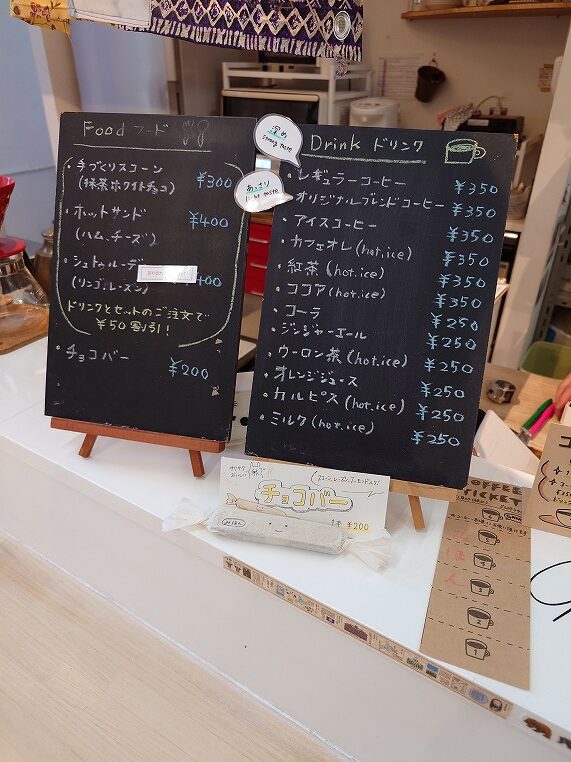 Food フード
・手づくりスコーン
(抹茶ホワイトチョコ) ¥300
・ホットサンド ¥400
(ハム、チーズ)
・シュトゥルーデ
(リンゴ、レーズン) 400
ドリンクとセットのご注文で
¥50割引!
・チョコバー ¥200
深め
strong taste
あっさり
light taste
Drink ドリンク
・レギュラーコーヒー ¥350
・オリジナルブレンドコーヒー ¥350
・アイスコーヒー ¥350
・カフェオレ(hot.ice) ¥350
・紅茶(hot.ice) ¥350
・ココア(hot.ice) ¥350
・コーラ ¥250
・ジンジャーエール ¥250
・ウーロン茶(hot.ice) ¥250
・オレンジジュース ¥250
・カルピス(hot.ice) ¥250
・ミルク(hot.ice) ¥250
チョコバー
1本 ¥200
COFFEE
TICKET
6
5
4
3
2
1